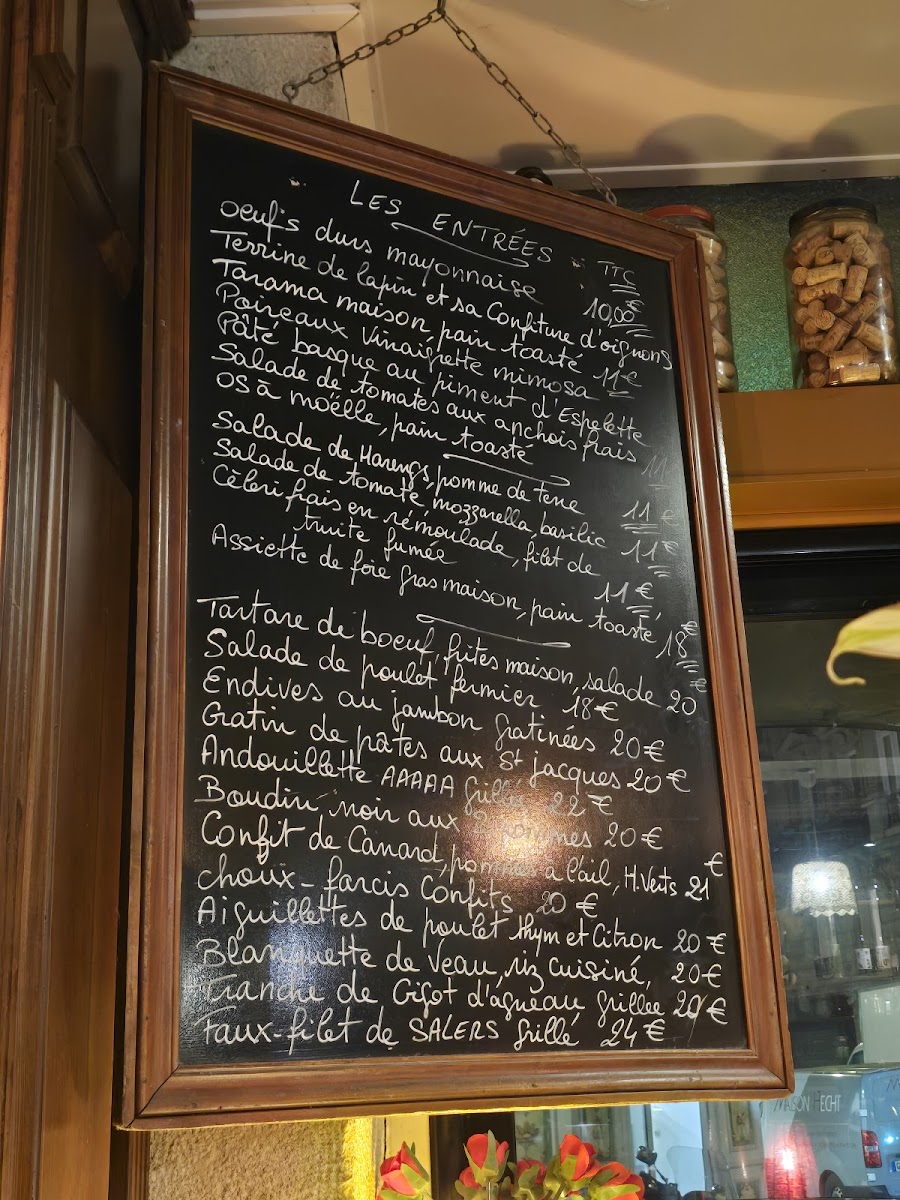 LES ENTRÉES TTC
oeufs durs mayonnaise 10,00€
Terrine de lapin et sa Confiture d'oignons
Tarama maison pain toasté 11€
Poireaux Vinaigrette mimosa
Pâté basque au piment d'Espelette
Salade de tomates aux anchois frais 11
OS à moëlle, pain toasté
Salade de Harengs, pomme de terre 11€
Salade de tomate mozzarella, basilic 11€
Cèleri frais en rémoulade, filet de
truite fumée 11€
Assiette de foie gras maison, pain toasté, 18€
Tartare de boeuf, frites maison, salade 20€
Salade de poulet fermier 18€
Endives au jambon gratinées 20€
Gratin de pâtes aux St jacques 20€
Andouillette AAAAA Grillée 22€
Boudin noir aux 2 pommes 20€
Confit de Canard, pommes à l'ail, H.Verts 21€
choux-farcis Confits 20€
Aiguillettes de poulet thym et Citron 20€
Blanquette de Veau, riz Cuisiné, 20€
Tranche de Gigot d'agneau grillée €
Faux-filet de SALERS grillé 24€
MAISON HECHT